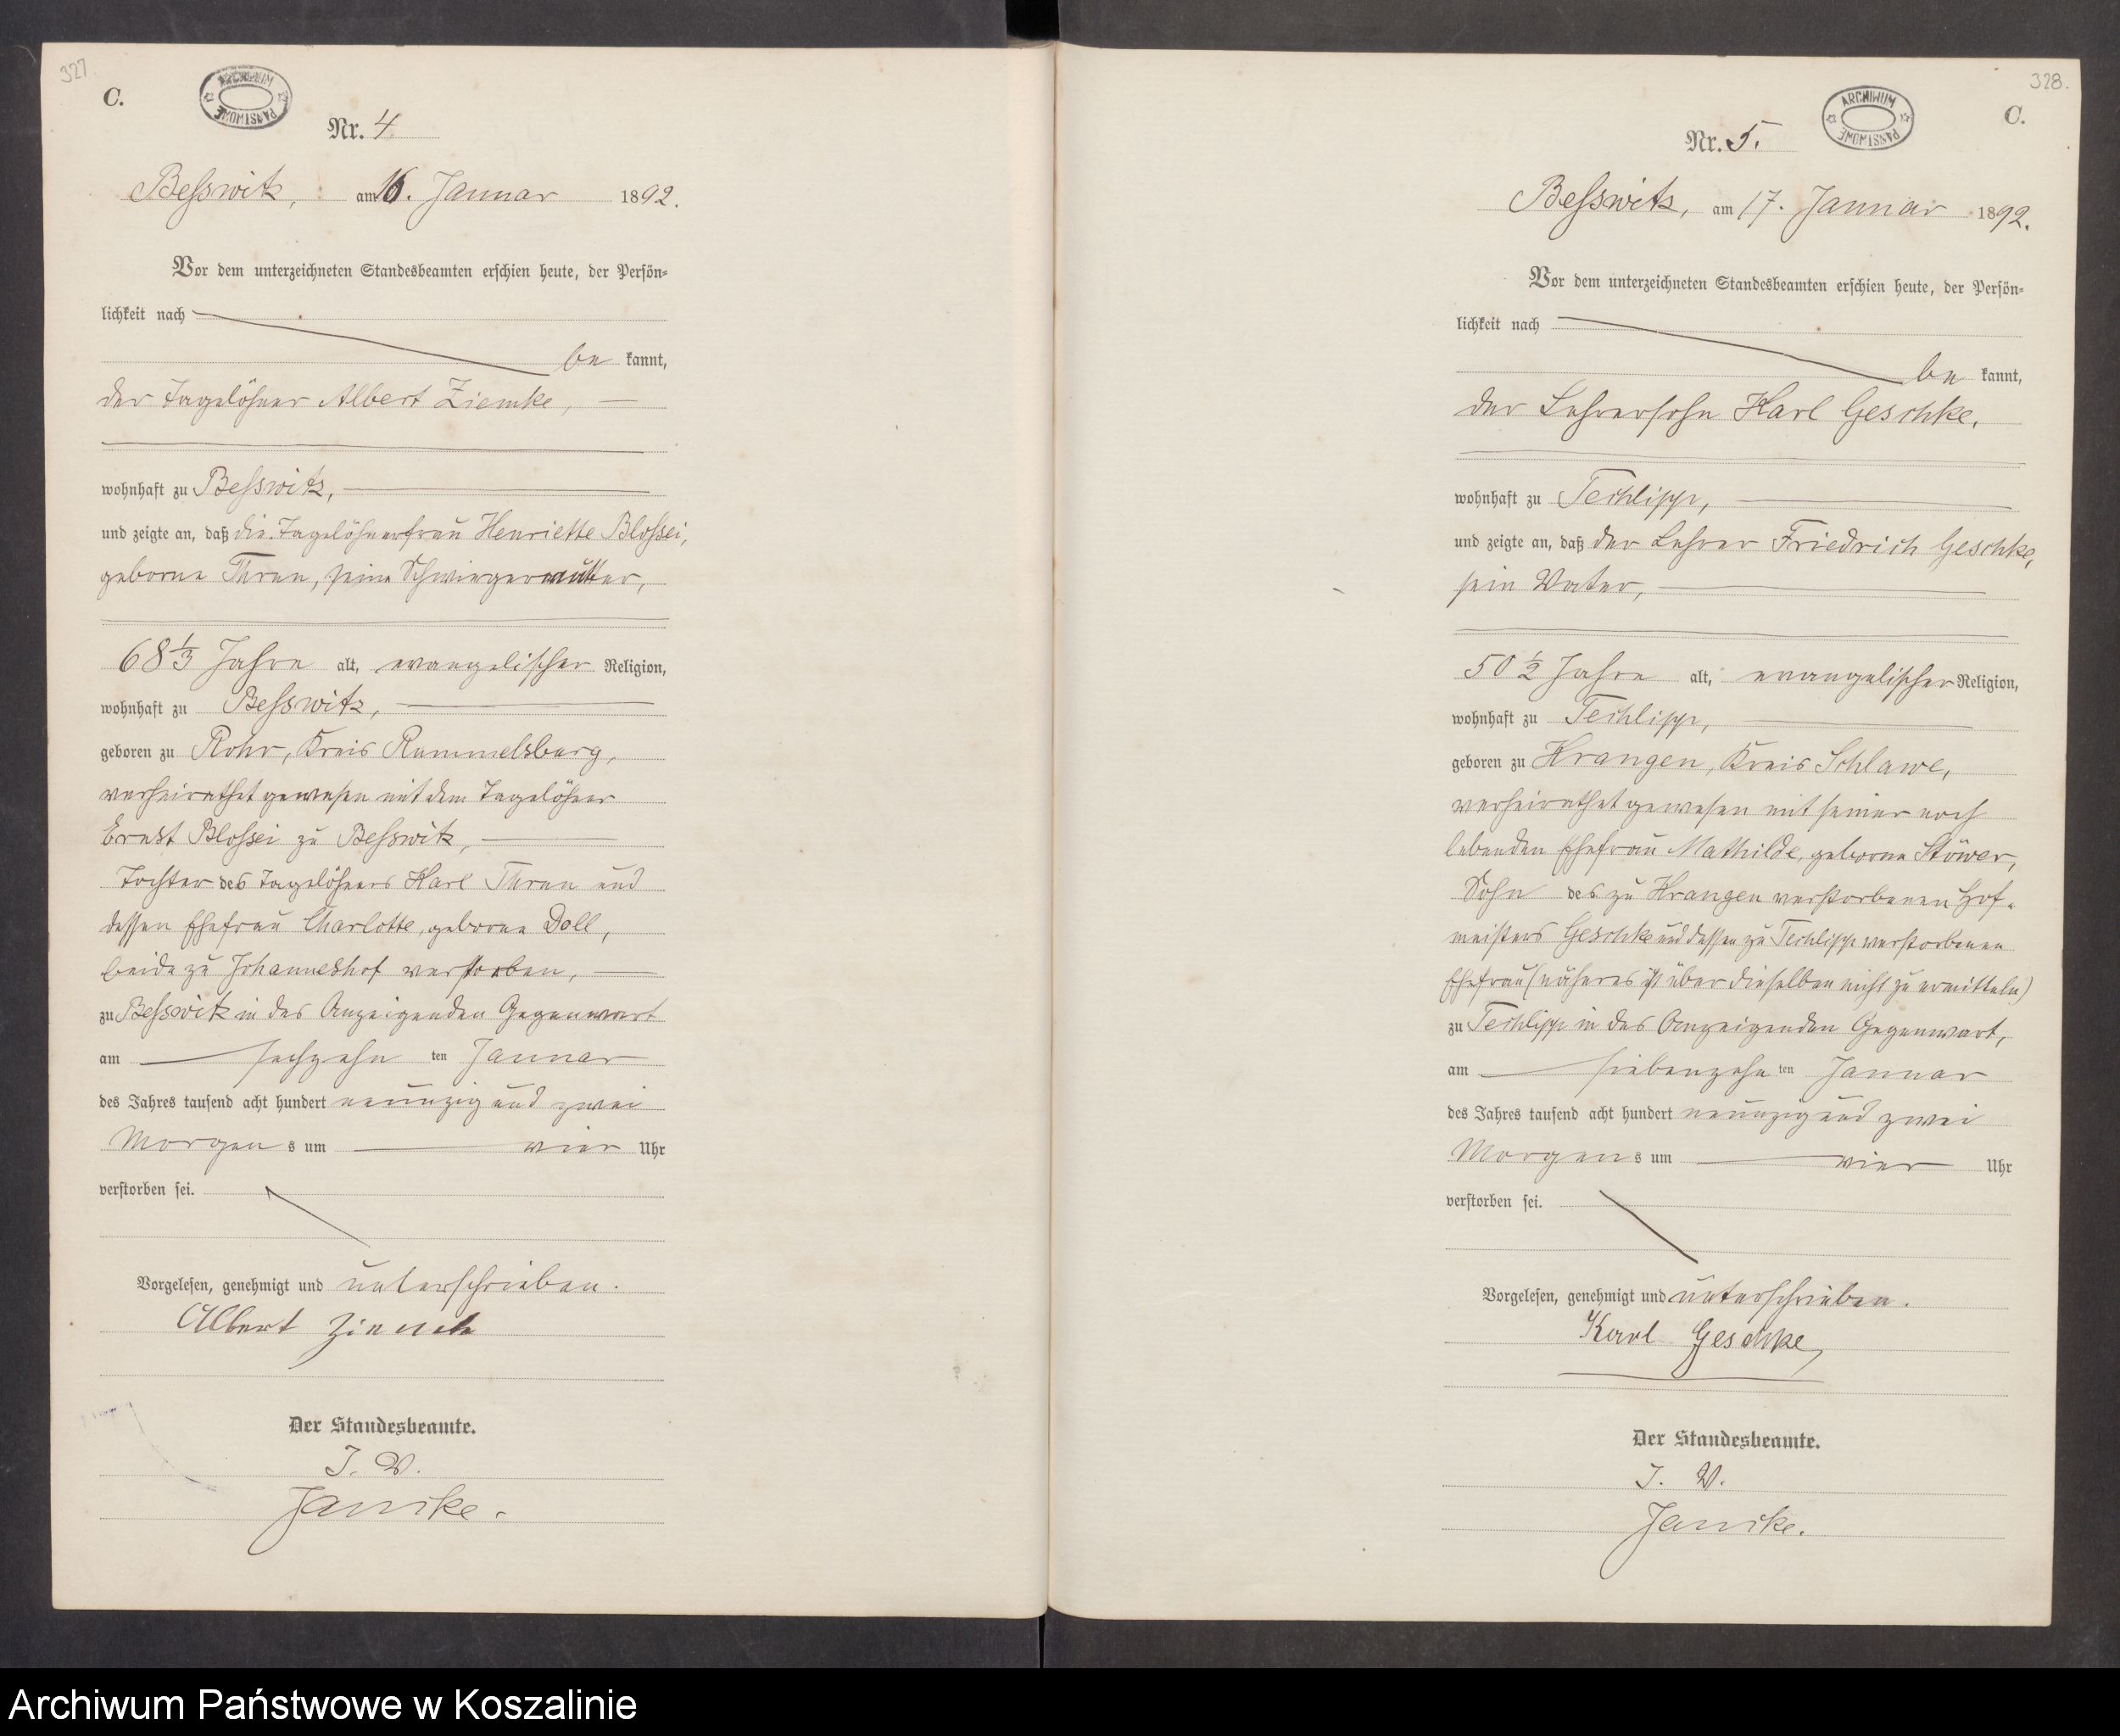 327.
C.
ARCHIWUM PAŃSTWOWE
Nr. 4.
Beßswitz, am 16. Januar 1892.
Vor dem unterzeichneten Standesbeamten erschien heute, der Persön-
lichkeit nach
be kannt,
der Tagelöhner Albert Ziemke,
wohnhaft zu Beßswitz,
und zeigte an, daß die Tagelöhnerfrau Henriette Bloßei,
geborne Thren, seine Schwiegermutter,
68 1/3 Jahre alt, evangelischer Religion,
wohnhaft zu Beßswitz,
geboren zu Rohr, Kreis Rummelsburg,
verheirathet gewesen mit dem Tagelöhner
Ernst Bloßei zu Beßswitz,
Tochter des Tagelöhners Karl Thren und
dessen Ehefrau Charlotte, geborne Doll,
beide zu Johanneshof verstorben,
zu Beßswitz in des Anzeigenden Gegenwart
am sechzehn ten Januar
des Jahres tausend acht hundert neunzig und zwei
Morgen s um vier Uhr
verstorben sei.
Vorgelesen, genehmigt und unterschrieben.
Albert Ziemke
Der Standesbeamte.
J. V.
Janike.
328.
C.
ARCHIWUM PAŃSTWOWE
Nr. 5.
Beßswitz, am 17. Januar 1892.
Vor dem unterzeichneten Standesbeamten erschien heute, der Persön-
lichkeit nach
be kannt,
der Lehrersohn Karl Geschke,
wohnhaft zu Techlipp,
und zeigte an, daß der Lehrer Friedrich Geschke,
sein Vater,
50 1/2 Jahre alt, evangelischer Religion,
wohnhaft zu Techlipp,
geboren zu Krangen, Kreis Schlawe,
verheirathet gewesen mit seiner noch
lebenden Ehefrau Mathilde, geborne Stöwer,
Sohn des zu Krangen verstorbenen Hof-
meisters Geschke und dessen zu Techlipp verstorbenen
Ehefrau (näheres ist über dieselben nicht zu ermitteln)
zu Techlipp in des Anzeigenden Gegenwart,
am siebenzehn ten Januar
des Jahres tausend acht hundert neunzig und zwei
Morgen s um vier Uhr
verstorben sei.
Vorgelesen, genehmigt und unterschrieben.
Karl Geschke,
Der Standesbeamte.
J. V.
Janike.
Archiwum Państwowe w Koszalinie